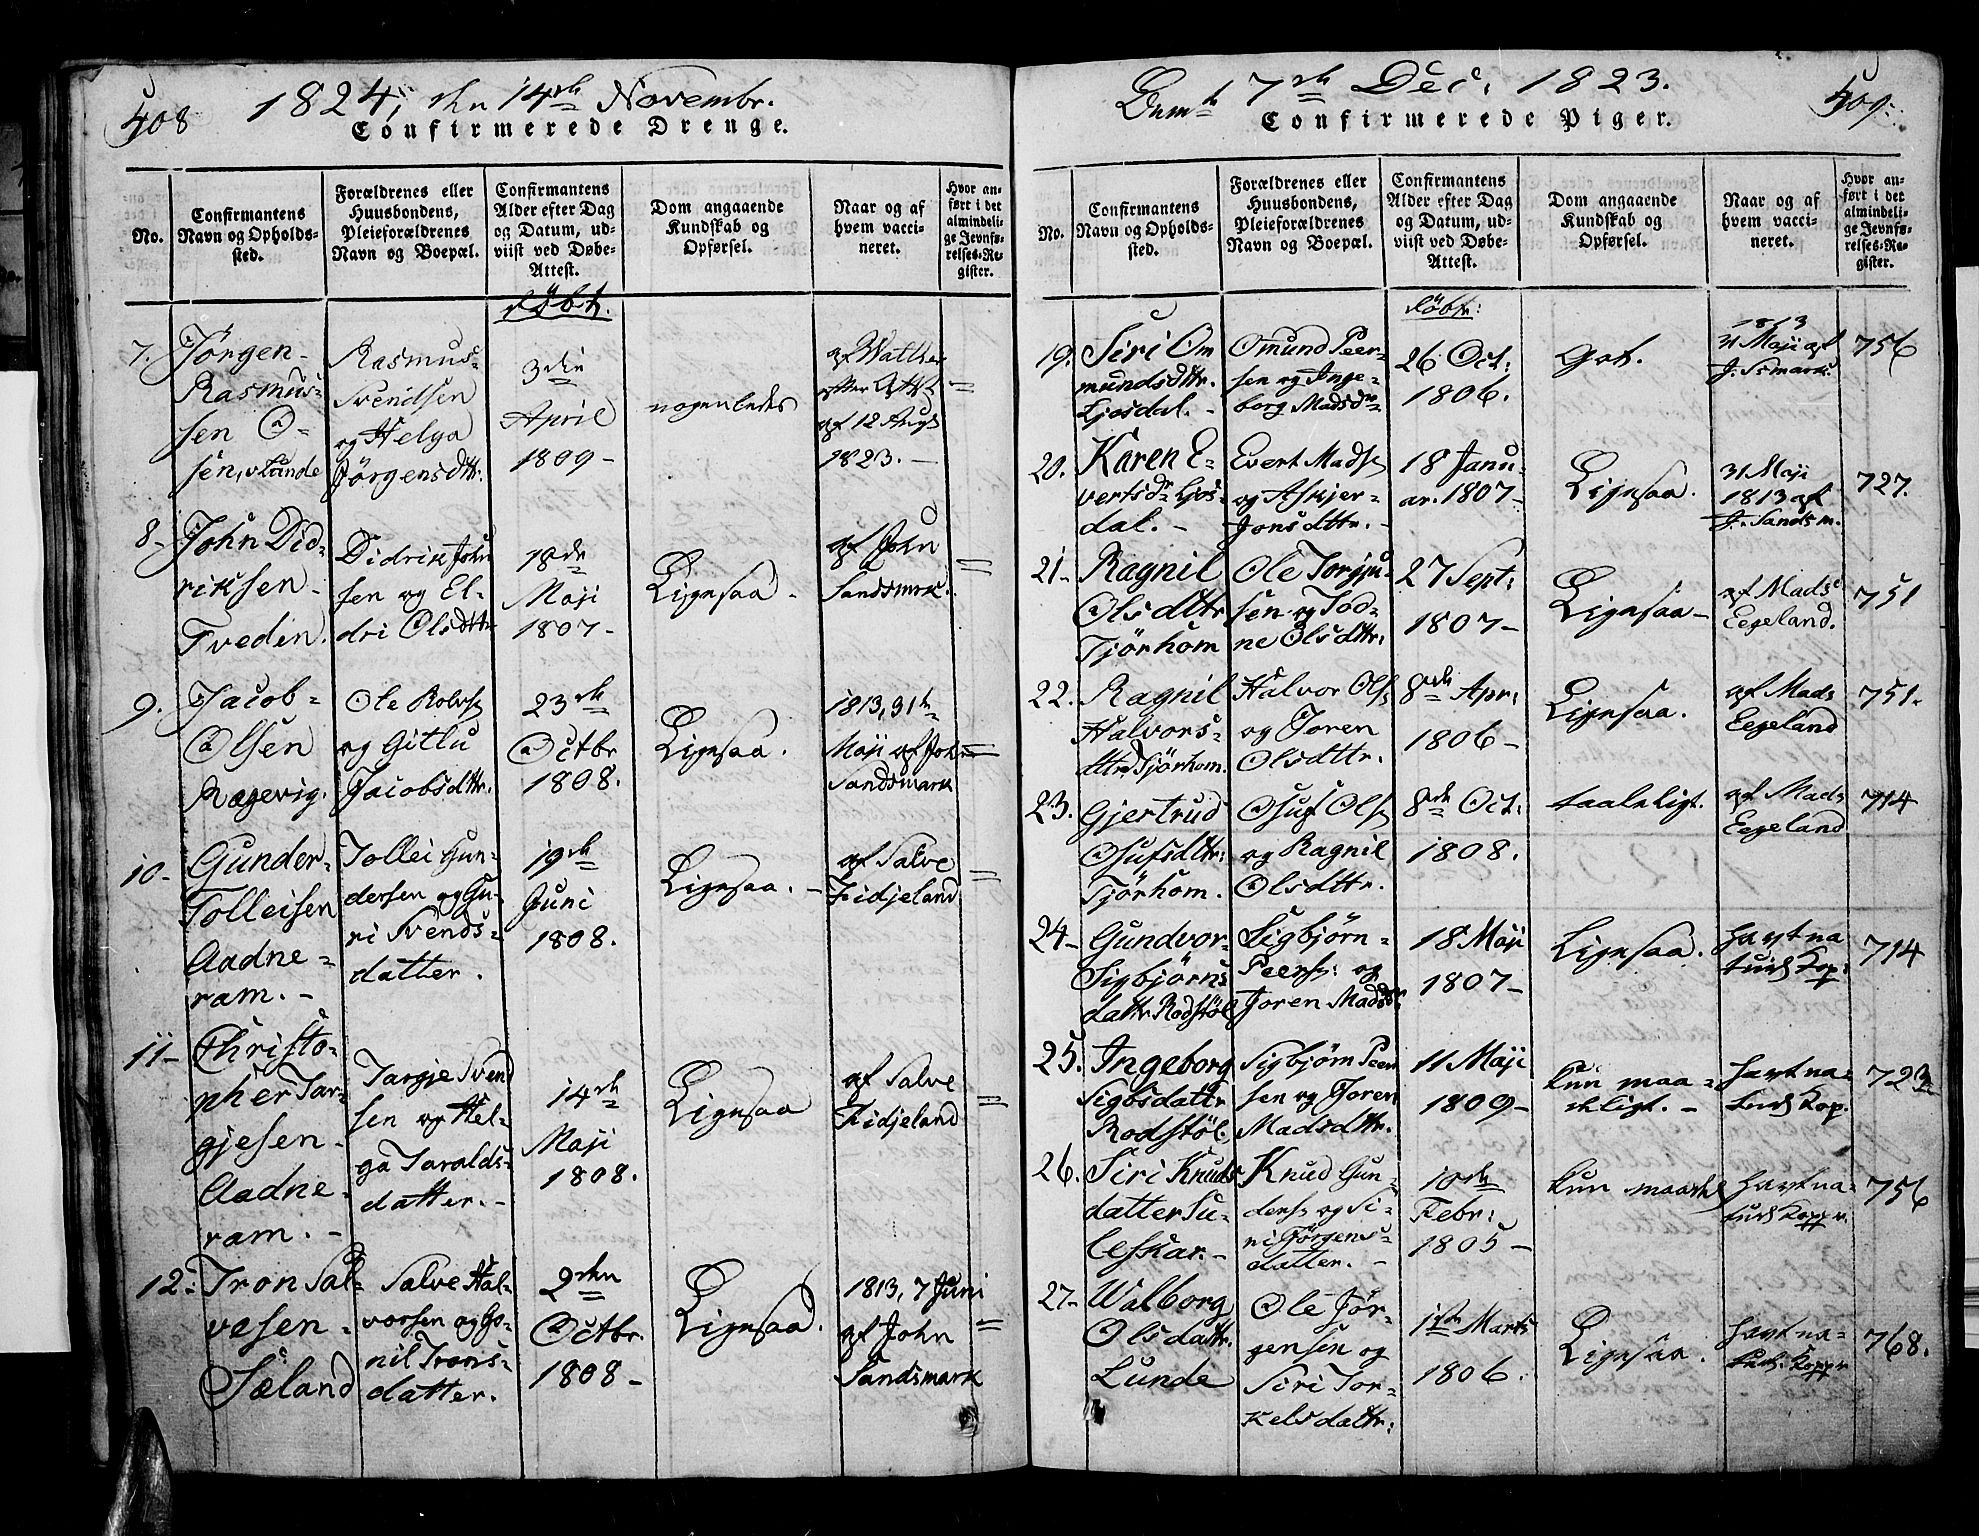 408
1824, den 14de Novembr.
Confirmerede Drenge.
No.
Confirmantens
Navn og Opholds-
sted.
Forældrenes eller
Huusbondens,
Pleieforældrenes
Navn og Boepæl.
Confirmantens
Alder efter Dag
og Datum, ud-
viist ved Døbe-
Attest.
Dom angaaende
Kundskab og
Opførsel.
Naar og af
hvem vacci-
neret.
Hvor an-
ført i det
almindeli-
ge Jevnfø-
relses-Re-
gister.
døbt.
7.
Jørgen
Rasmus-
sen O-
sen, Lunde
Rasmus
Svendsen
og Helga
Jørgensdttr.
3die
April
1809-
nogenledes
af Walther
efter Attst
af 12 Augs
1823.-
=
8-
John Did-
riksen
Tvedin.
Didrik John
sen og El-
dri Olsdttr
18de
Maji
1807-
Ligesaa-
af John
Sandsmrk.
=
9.
Jacob-
Olsen
Rægevig.
Ole Rolvs
og Gitlu
Jacobsdttr.
23de
Octbr
1808.
Ligesaa.
1813, 31te
Maji af John
Sandsmark
=
10-
Gunder-
Tolleisen
Aadne-
ram.-
Tollei Gun-
dersen og Gu-
ri Svends-
datter.
19de
Juni
1808.
Ligesaa.-
af Salve
Fidjeland
=
11-
Christo-
pher Tar-
gjesen-
Aadne-
ram.-
Targje Svend
sen og Hel-
ga Taralds-
datter.-
14de
Maji
1808.
Ligesaa
af Salve
Fidjeland
=
12-
Tron Sal-
vesen-
Sæland
Salve Hal-
vorsen og Go-
nil Trons-
datter.
2den
Octbr.
1808-
Ligesaa.
1813, 7 Juni
af John
Sandsmark
=
409.
7de Dec. 1823.
Confirmerede Piger.
No.
Confirmantens
Navn og Opholds-
sted.
Forældrenes eller
Huusbondens,
Pleieforældrenes
Navn og Boepæl.
Confirmantens
Alder efter Dag
og Datum, ud-
viist ved Døbe-
Attest.
Dom angaaende
Kundskab og
Opførsel.
Naar og af
hvem vacci-
neret.
Hvor an-
ført i det
almindeli-
ge Jevnfø-
relses-Re-
gister.
døbt:
19.
Siri Om
mundsdttr.
Ljosdal.-
Omund Peer-
sen og Inge-
borg Madsdr
26 Oct:
1806.
Got.
1813
31 Maji af
J. Ssmark.
756
20.
Karen E-
vertsdr Ljos-
dal.-
Evert Mads
og Askjer-
Jonsdttr.-
18 Janu-
ar. 1807-
Ligesaa.
31 Maji
1813 af
J. Sandsm.
727.
21-
Ragnil
Olsdttr
Tjørhom
Ole Torgju-
sen og Tod-
ne Olsdttr:
27 Sept:
1807-
Ligesaa-
af Mads
Eegeland.
751
22.
Ragnil
Halvors-
dttr Tjørhom.
Halvor Ols
og Joren
Olsdttr.
8de Apr:
1806-
Ligesaa.
af Mads
Eegeland
751.
23.
Gjertrud
Osufsdttr:
Tjørhom.
Osuf Ols
og Ragnil
Olsdttr.
8de Oct:
1808.
taaleligt.
af Mads
Eegeland
714
24-
Gundvor-
Sigbjørns
dattr Rodstøl
Sigbjørn-
Peers: og
Joren Madsdr
18 Maji
1807-
Ligesaa.
havt na
turl Kop:
714
25.
Ingeborg
Sigbsdattr
Rodstøl.
Sigbjørn Peer
sen og Joren
Madsdttr.
11 Maji
1809-
kun maa-
deligt.-
havt na-
turl Kop.
723
26.
Siri Knuds
datter Su-
leskar.-
Knud Gun-
ders: og Si-
ri Jørgens-
datter.-
10de
Febr:
1805-
kun
havt na-
turl Kopper.
756
27-
Walborg
Olsdattr.
Lunde
Ole Jør-
gensen og
Siri Tor-
kelsdattr:
1ste Marts
1806.
Ligesaa.
havt na-
turl. Kopper
768.